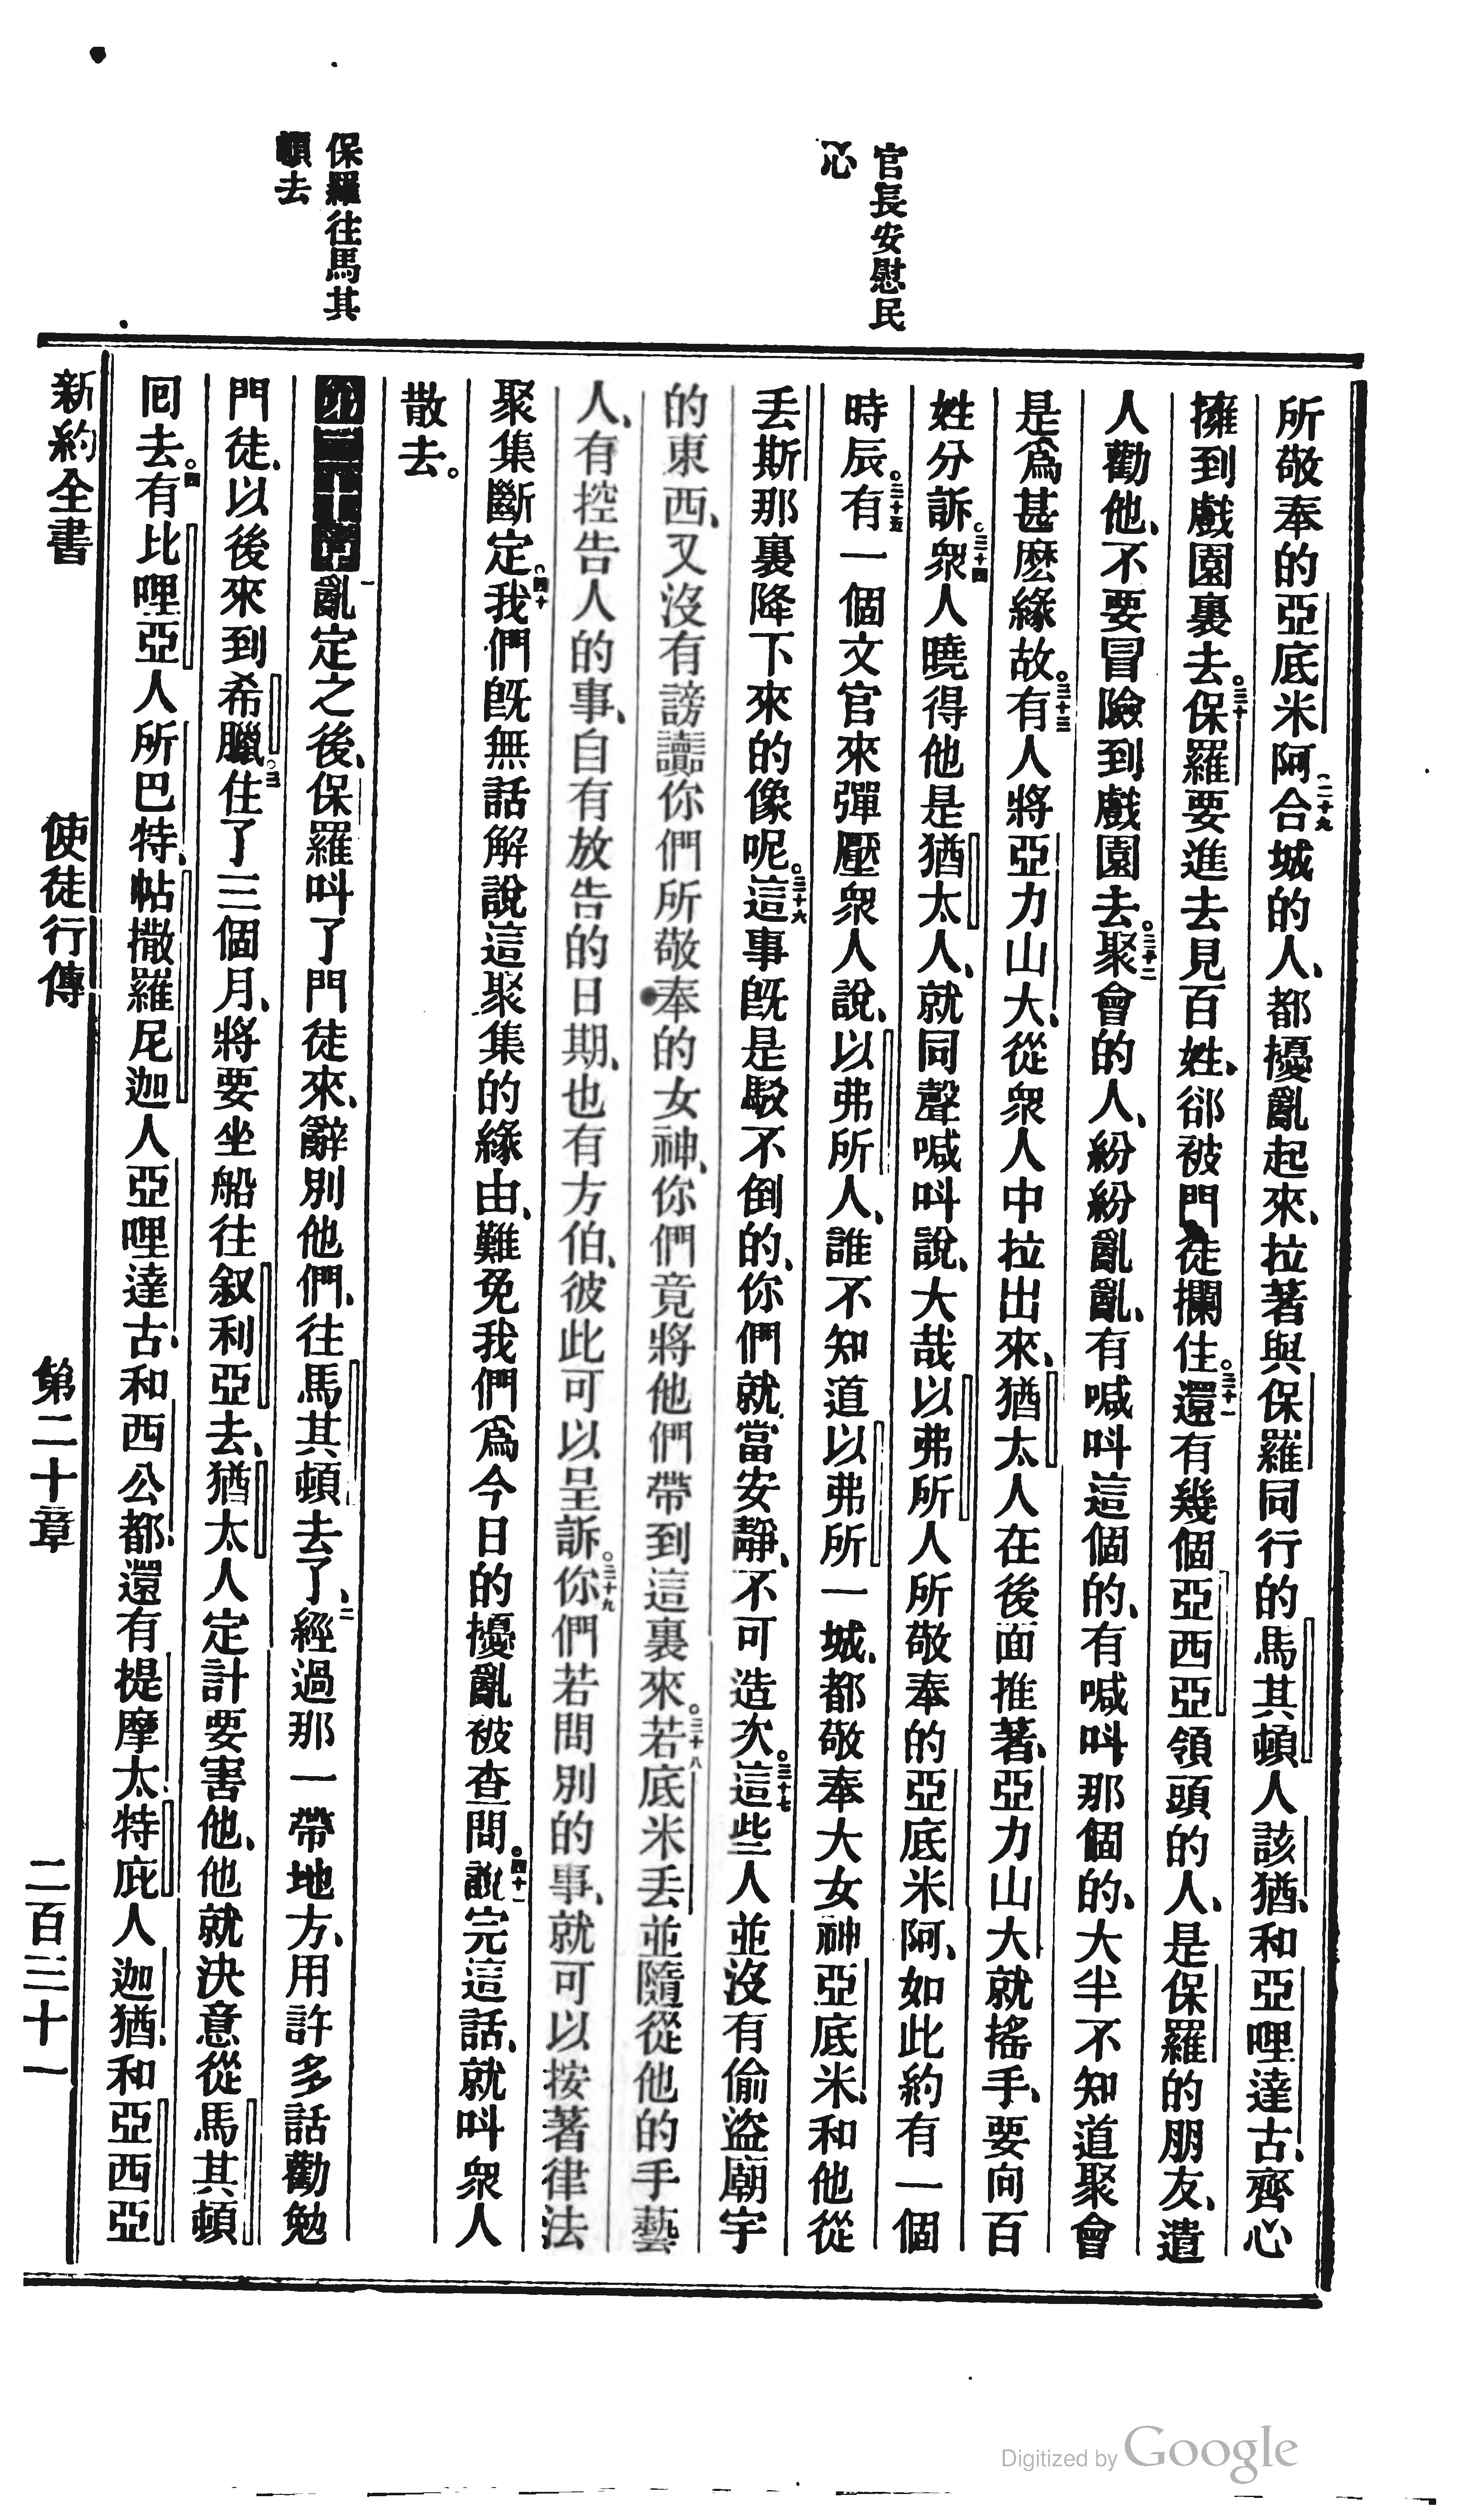 官長安慰民
心
保羅往馬其
頓去
所敬奉的亞底米阿、(二十九)合城的人、都擾亂起來、拉著與保羅同行的馬其頓人該猶、和亞哩達古、齊心
擁到戲園裏去。三十保羅要進去見百姓、卻被門徒攔住。三十一還有幾個亞西亞領頭的人、是保羅的朋友、遣
人勸他、不要冒險到戲園去。三十二聚會的人、紛紛亂亂、有喊呌這個的、有喊呌那個的、大半不知道聚會
是爲甚麽緣故。三十三有人將亞力山大、從衆人中拉出來、猶太人在後面推著、亞力山大就搖手、要向百
姓分訴。三十四衆人曉得他是猶太人、就同聲喊呌說、大哉以弗所人所敬奉的亞底米阿、如此約有一個
時辰。三十五有一個文官來彈壓衆人說、以弗所人、誰不知道以弗所一城、都敬奉大女神亞底米、和他從
丟斯那裏降下來的像呢。三十六這事旣是駁不倒的、你們就當安靜、不可造次。三十七這些人並沒有偷盜廟宇
的東西、又沒有謗讟你們所敬奉的女神、你們竟將他們帶到這裏來。三十八若底米丟並隨從他的手藝
人、有控告人的事、自有放告的日期、也有方伯、彼此可以呈訴。三十九你們若問別的事、就可以按著律法
聚集斷定。四十我們旣無話解說這聚集的緣由、難免我們爲今日的擾亂被查問。四十一說完這話、就呌衆人
散去。
第二十章一亂定之後、保羅呌了門徒來、辭別他們、往馬其頓去了、二經過那一帶地方、用許多話勸勉
門徒、以後來到希臘。三住了三個月、將要坐船往叙利亞去、猶太人定計要害他、他就決意從馬其頓
囘去。四有比哩亞人所巴特、帖撒羅尼迦人亞哩達古、和西公都、還有提摩太、特庇人迦猶、和亞西亞
新約全書
使徒行傳
第二十章
二百三十一
Digitized by Google